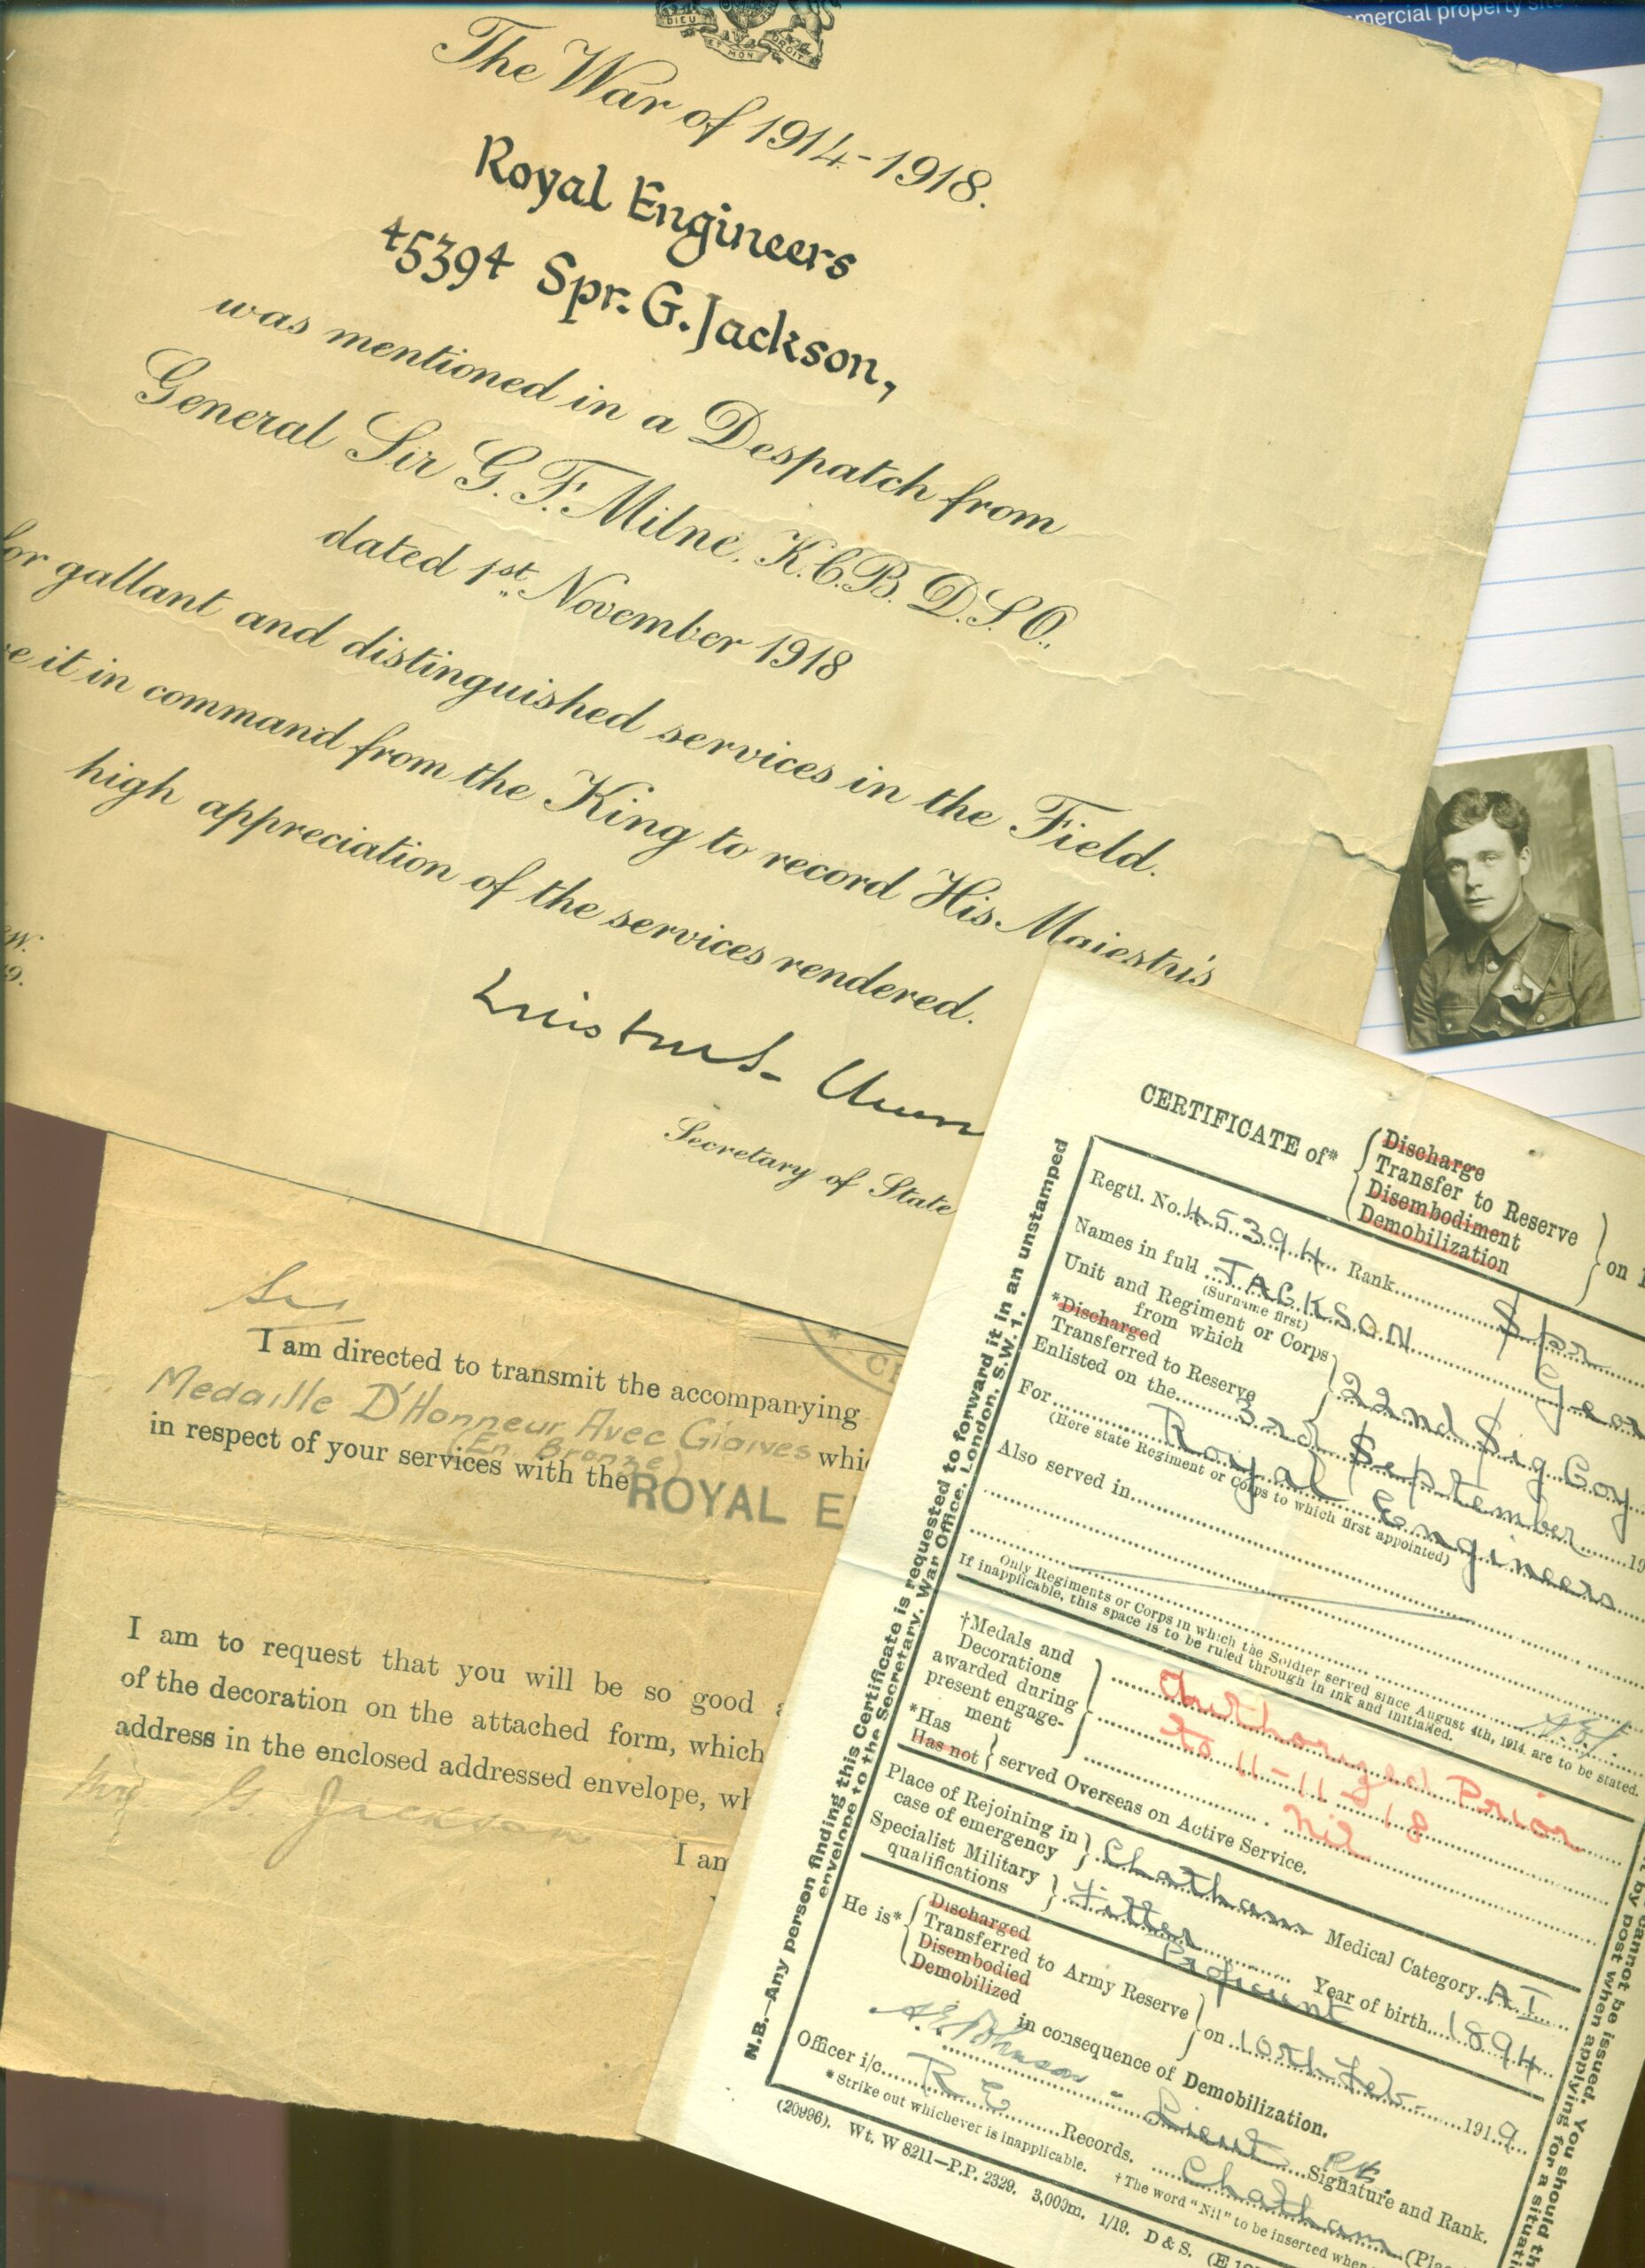 mmercial property site
DIEU
ET MON
DROIT
The War of 1914-1918.
Royal Engineers
45394 Spr. G. Jackson,
was mentioned in a Despatch from
General Sir G. F. Milne. K.C.B. D.S.O.,
dated 1st November 1918
for gallant and distinguished services in the Field.
e it in command from the King to record His Majesty's
high appreciation of the services rendered.
Secretary of State
W.
9.
Sir
I am directed to transmit the accompanying
Medaille D'Honneur Avec Glaives whic
(En Bronze)
in respect of your services with the ROYAL E
CE
I am to request that you will be so good a
of the decoration on the attached form, which
address in the enclosed addressed envelope, wh
G. Jackson
I am
CERTIFICATE of*
Discharge
Transfer to Reserve
Disembodiment
Demobilization
on
Regtl. No. 45394 Rank Spr
Names in full JACKSON Geor
(Surname first)
Unit and Regiment or Corps
from which
*Discharged
Transferred to Reserve
22nd Sig Coy
Enlisted on the 3rd September 19
For Royal Engineers
(Here state Regiment or Corps to which first appointed)
Also served in
Only Regiments or Corps in which the Soldier served since August 4th, 1914 are to be stated.
If inapplicable, this space is to be ruled through in ink and initialled.
†Medals and
Decorations
awarded during
present engage-
ment
Authorized Prior
to 11-11-18
Nil
*Has
Has not
served Overseas on Active Service.
Place of Rejoining in
case of emergency
Chatham Medical Category A I
Specialist Military
qualifications
Fitter
Proficient
Year of birth 1894
He is*
Discharged
Transferred to Army Reserve
Disembodied
Demobilized
on 10th Feb 1919
in consequence of Demobilization.
Lieut RE Signature and Rank.
Officer i/c R E Records. Chatham (Plac
*Strike out whichever is inapplicable. †The word "Nil" to be inserted when
(20996). Wt. W 8211—P.P. 2329. 3,000m. 1/19. D & S. (E 10
N.B.—Any person finding this Certificate is requested to forward it in an unstamped
envelope to the Secretary, War Office, London, S.W. 1.
cannot be issued. You should th
by post when applying for a situati